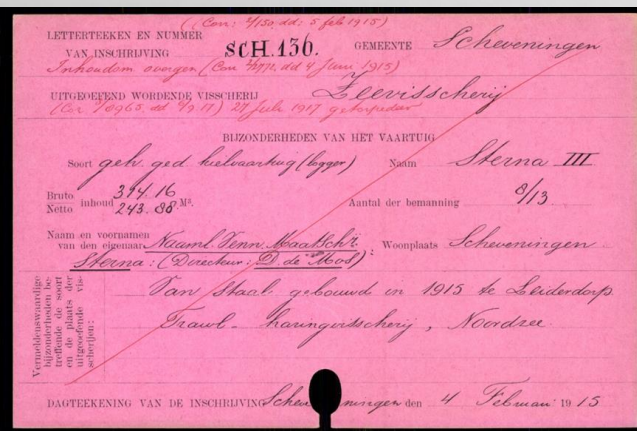 (Corr: 2/150 dd: 5 feb 1915)
LETTERTEEKEN EN NUMMER
VAN INSCHRIJVING SCH. 136. GEMEENTE Scheveningen
Inhoudom overgen (Corr dd 4 Juni 1915)
UITGEOEFEND WORDENDE VISSCHERIJ Zeevisscherij
27 Juli 1917 getorpedeer
BIJZONDERHEDEN VAN HET VAARTUIG
Soort geh. ged. kielvaartuig (logger) Naam Sterna III
Bruto 314.16
Netto inhoud 243.88 M³. Aantal der bemanning 8/13
Naam en voornamen
van den eigenaar Naaml. Venn. Maatschij: Woonplaats Scheveningen
Sterna: (Directeur: D de Mos)
Vermeldenswaardige bijzonderheden betreffende de soort en de plaats der uitgeoefende visscherijen:
Van Staal gebouwd in 1915 te Leiderdorp.
Trawl- haringvisscherij, Noordzee.
DAGTEEKENING VAN DE INSCHRIJVING Scheveningen den 4 Februari 1915